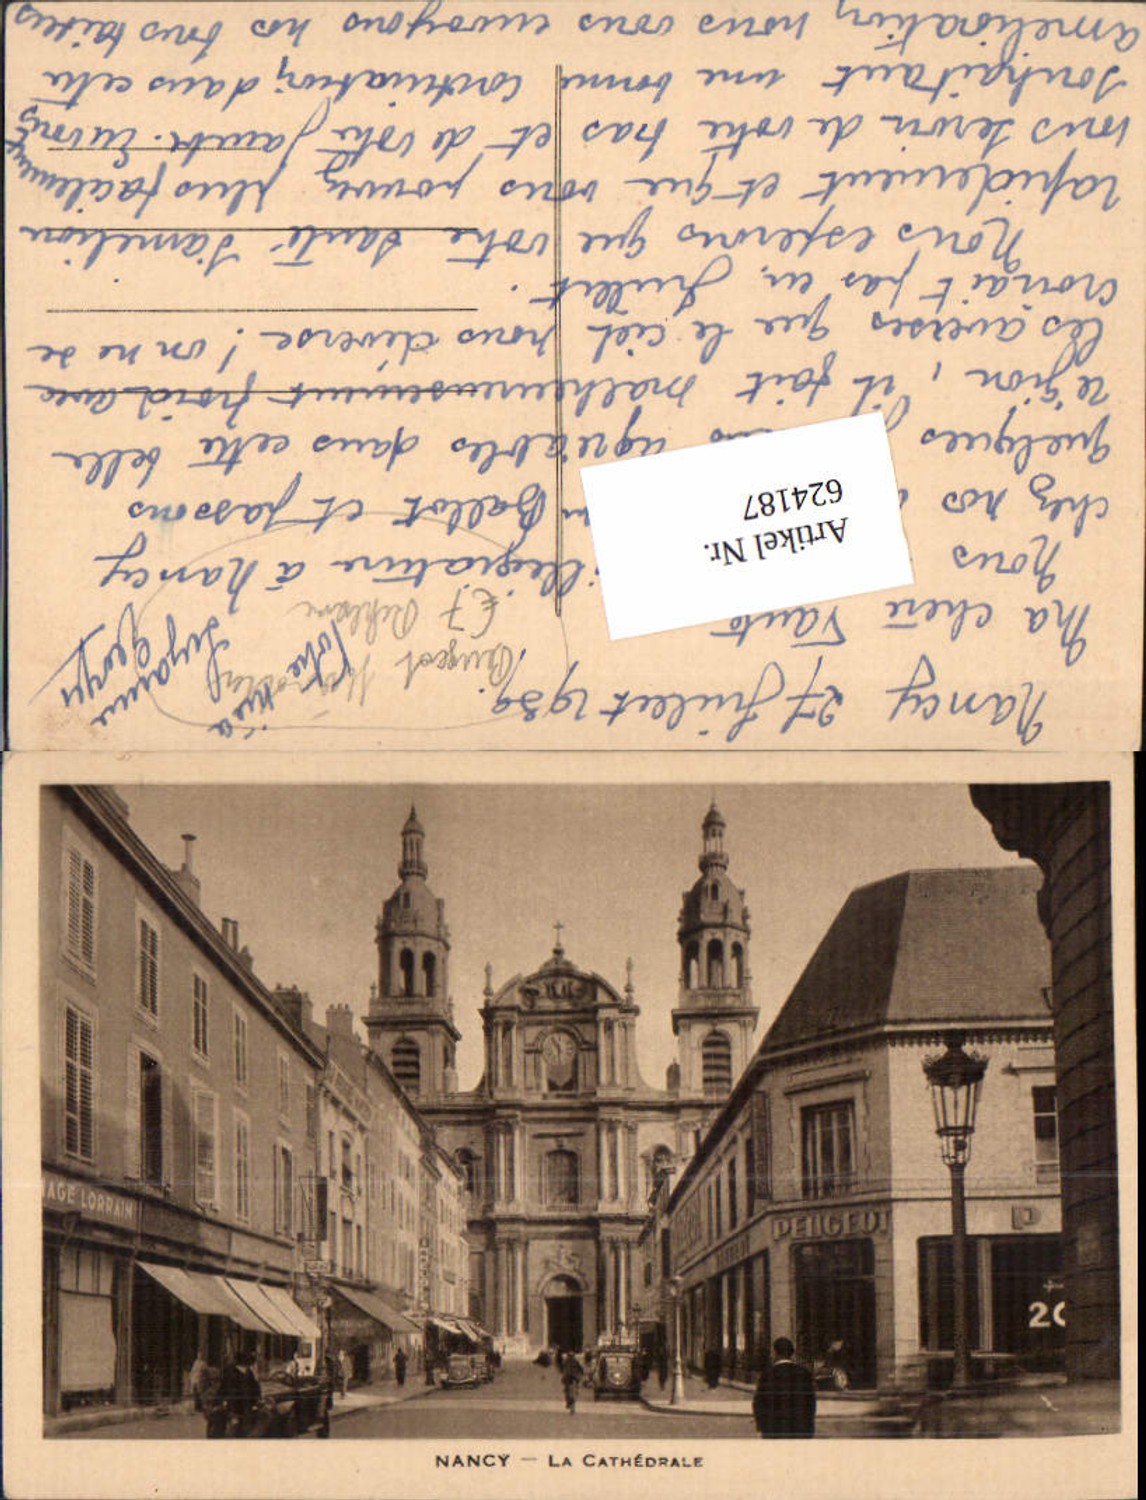 Nancy 27 Juillet 1939
Ma chère Tante
Nous à Nancy
chez nos Ballot et passons
quelques agréables dans cette belle
région, il fait malheureusement froid avec
les averses que le ciel nous déverse ! on ne se
croirait pas en Juillet.
Nous espérons que votre santé s'améliore
rapidement et que vous pouvez plus facilement
vous servir de votre bras et de votre jambe.
souhaitant une bonne continuation dans cette
amélioration nous vous envoyons nos bons baisers
Suzanne
Peugeot
Artikel Nr.
624187
AGE LORRAIN
PEUGEOT
P
20
NANCY — LA CATHÉDRALE